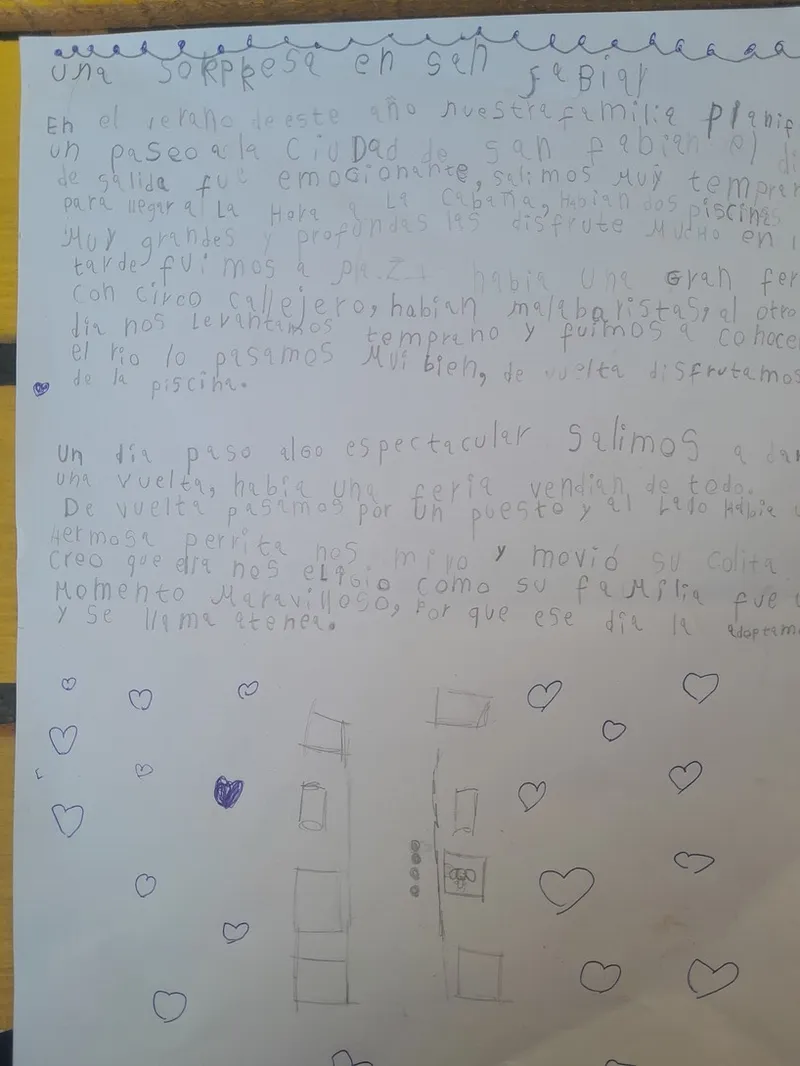 una sorpresa en san fabian
En el verano de este año nuestra familia planif
un paseo a la Ciudad de san fabian el di
de salida fue emocionante, salimos muy tempran
para llegar a la Hora a La Cabaña, Habian dos piscinas
Muy grandes y profundas las disfrute mucho en l
tarde fuimos a plaza había una gran fer
con circo callejero, habían malabaristas, al otro
día nos Levantamos temprano y fuimos a conocer
el rio lo pasamos Mui bien, de vuelta disfrutamos
de la piscina.
Un día paso algo espectacular salimos a dar
una vuelta, había una feria vendian de todo.
De vuelta pasamos por un puesto y al Lado Había u
Hermosa perrita nos miro y movió su colita
creo que ella nos eligio como su familia fue u
Momento Maravilloso, Por que ese día la adoptamo
y se llama atenea.